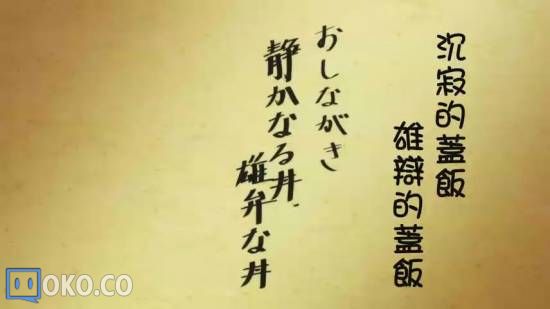 沉寂的蓋飯
雄辯的蓋飯
おしながき
静かなる丼、
雄弁な丼
OKO.CO